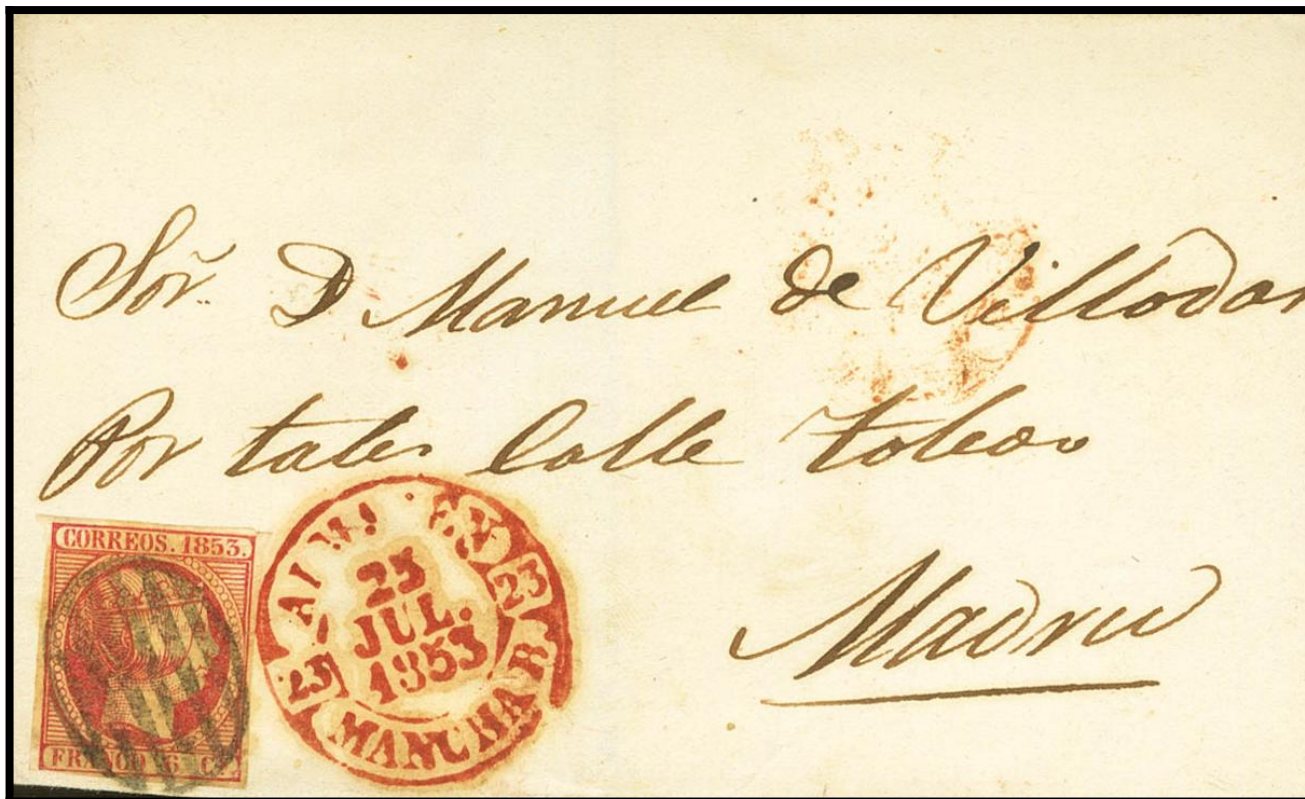 Sor. D Manuel de Villodar
Por tales Calle toledo
Madrid
CORREOS. 1853.
FRANCO 6 Cs.
25
JUL.
1853
23
25
MANCHA R.